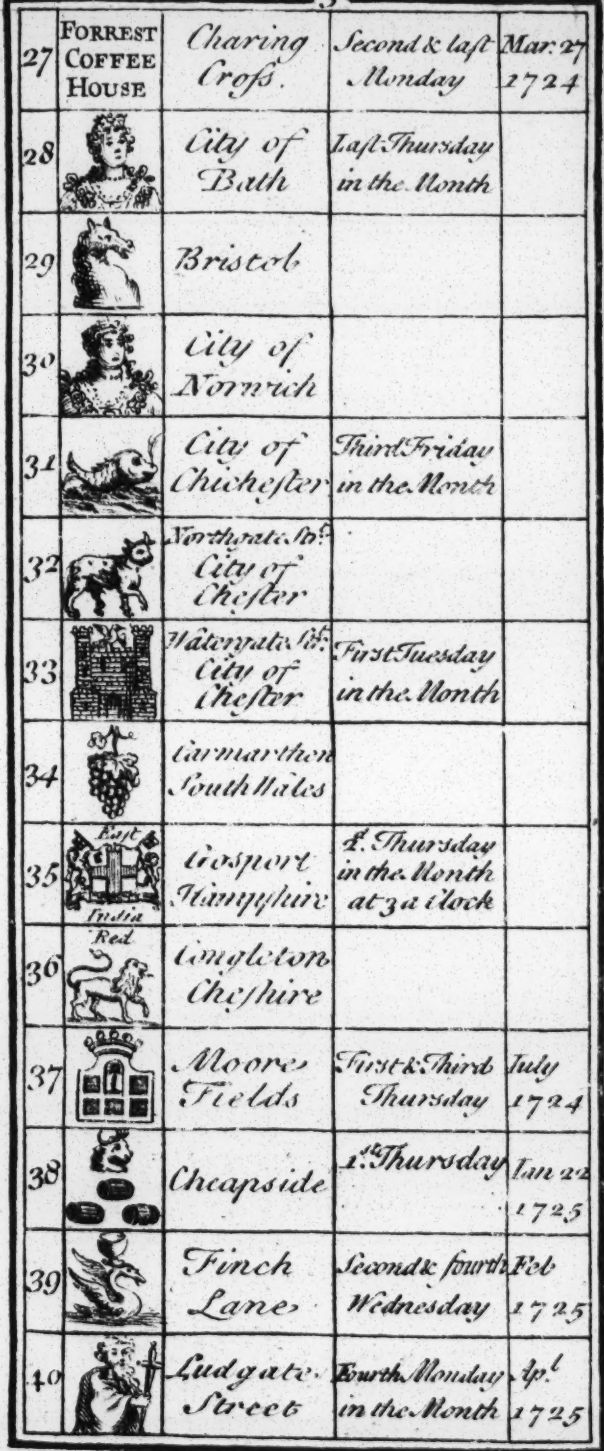 27
FORREST
COFFEE
HOUSE
Charing
Croſs.
Second & laſt
Monday
Mar. 27
1724
28
City of
Bath
Laſt Thursday
in the Month
29
Bristol
30
City of
Norwich
31
City of
Chicheſter
Third Friday
in the Month
32
Northgate Str.
City of
Cheſter
33
Watergate Str.
City of
Cheſter
First Tuesday
in the Month
34
Carmarthen
South Wales
35
East
India
Gosport
Hampſhire
Thursday
in the Month
at 3 a Clock
36
Red
Congleton
Cheſhire
37
Moore
Fields
First & Third
Thursday
July
1724
38
Cheapside
1st. Thursday
Ian 22
1725
39
Finch
Lane
Second & fourth
Wednesday
Feb
1725
40
Ludgate
Street
Fourth Monday
in the Month
Apl
1725